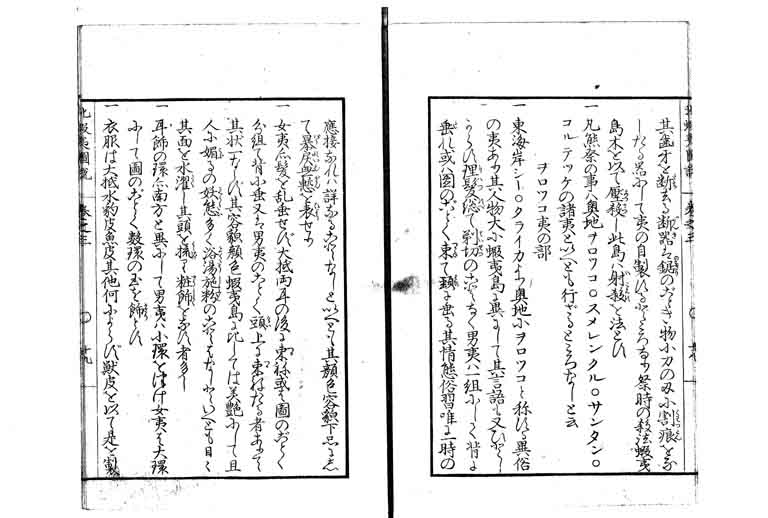 其歯牙を断去る断器は鋸のごとき物小刀の刃に割痕をな
したる器にして夷の自製いたすところなり祭時の殺法蝦夷
島木を以て壓殺し此島ハ射殺を法とし
一 凡熊祭の事ハ奥地ヲロツコ○スメレンクル○サンタン○
コルテツケの諸夷といへども行ざるところなしと云
ヲロツコ夷の部
一 東海岸シー○タライカより奥地にヲロツコと称いたす異俗
の夷あり其人物大に蝦夷島に異にして其言語も又ひとし
からず理髪の俗も剃切のことなく男夷ハ一組にして背に
垂れ或ハ圖のごとく束て頸に垂る其情態俗習唯一時の
應接なれハ詳なることなしといへども其顔色容貌下品にし
て暴戻無慙を表せり
一 女夷ハ髪を乱垂せず大抵両耳の後に束ね或は圖のごとく
分組て背に垂又は男夷のごとく頭上に束ねたる者ありて
其状一ならず其容貌顔色蝦夷島に比しては美艶にして且
人に媚るの姿態多く浴湯施粉のことはなしといへども日々
其面を水濯し其頭を梳て粧飾をなす者多し
一 耳飾の環ハ南方と異にして男夷ハ小環をつけ女夷は大環
にして圖のごとく數環の玉を飾とす
一 衣服は大抵水豹皮魚皮其他何によらず獣皮を以て是を製
北蝦夷圖説 巻之三